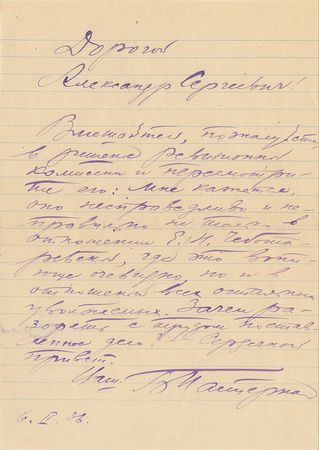 Дорогой
Александр Сергеевич!
Вмешайтесь, пожалуйста,
в решение ревизионной
комиссии и пересмотри-
те его: Мне кажется,
оно несправедливо и не-
правильно не только в
отношении Е. И. Чебота-
ревской, где это вопи-
юще очевидно, но и в
отношении всех остальных
увольняемых. Зачем ра-
зорять с трудом постав-
ленное дело? Сердечный
привет.
Ваш Б Пастернак